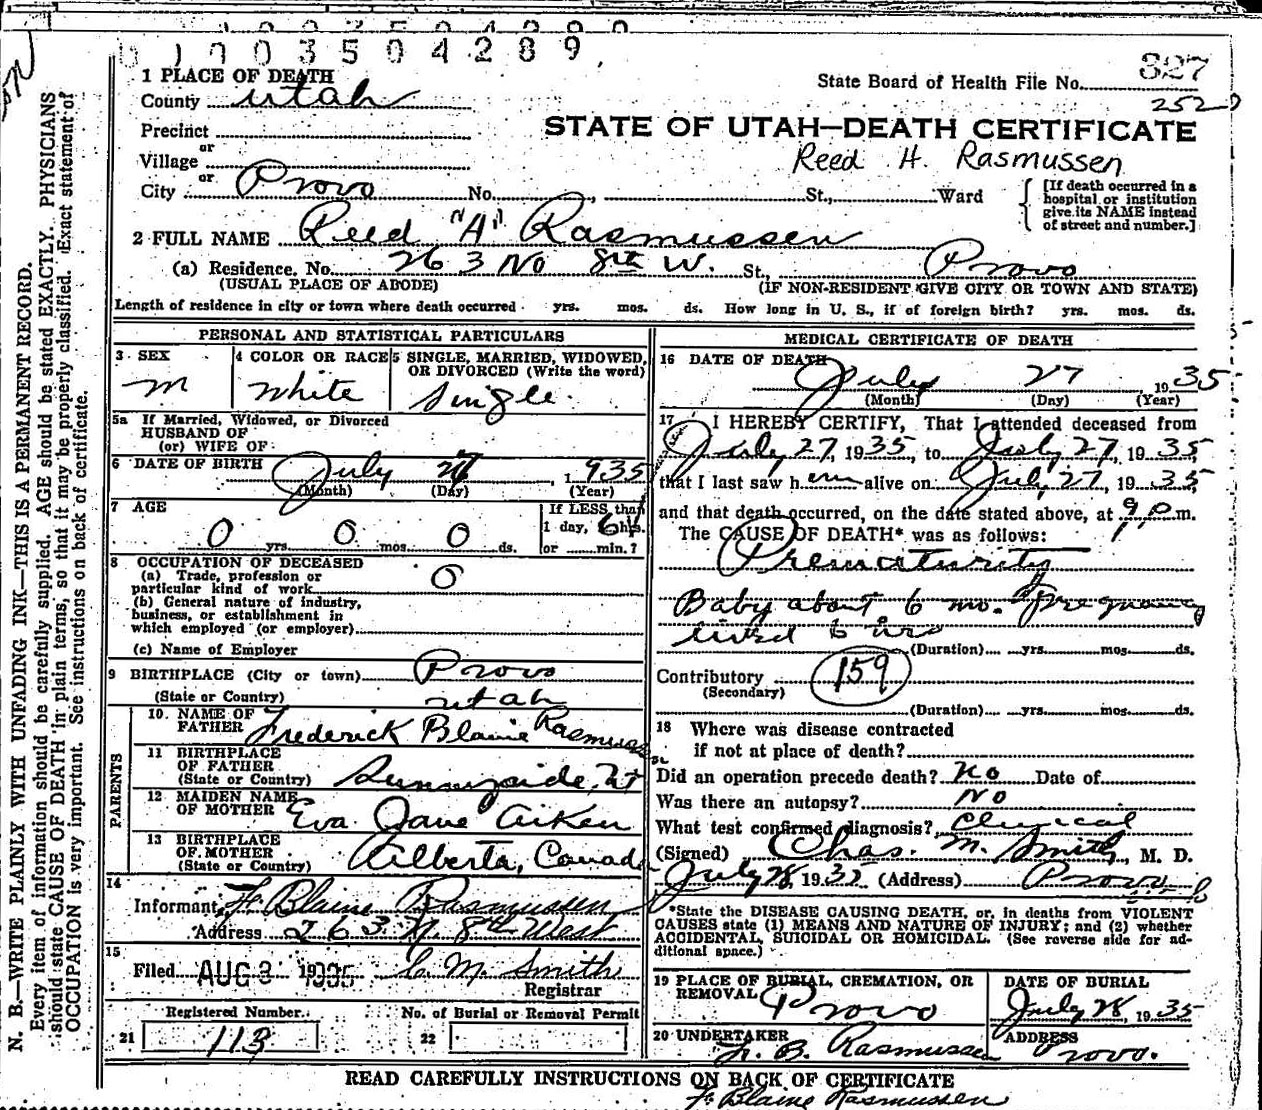 0 1 0 0 3 5 0 4 2 8 9
State Board of Health File No. 327
252
STATE OF UTAH—DEATH CERTIFICATE
Reed H. Rasmussen
1 PLACE OF DEATH
County Utah
Precinct
or
Village
or
City Provo No. , St., Ward
[If death occurred in a
hospital or institution
give its NAME instead
of street and number.]
2 FULL NAME Reed "A" Rasmussen
(a) Residence, No. 263 No 8th W. St., Provo
(USUAL PLACE OF ABODE) (IF NON-RESIDENT GIVE CITY OR TOWN AND STATE)
Length of residence in city or town where death occurred yrs. mos. ds. How long in U. S., if of foreign birth? yrs. mos. ds.
PERSONAL AND STATISTICAL PARTICULARS
3 SEX
m
4 COLOR OR RACE
White
5 SINGLE, MARRIED, WIDOWED,
OR DIVORCED (Write the word)
Single
5a If Married, Widowed, or Divorced
HUSBAND OF
(or) WIFE OF
6 DATE OF BIRTH July 27, 1935
(Month) (Day) (Year)
7 AGE
0 yrs. 0 mos. 0 ds.
If LESS than
1 day, 6 hrs.
or min.?
8 OCCUPATION OF DECEASED
(a) Trade, profession or
particular kind of work 0
(b) General nature of industry,
business, or establishment in
which employed (or employer)
(c) Name of Employer
9 BIRTHPLACE (City or town) Provo
(State or Country) Utah
PARENTS
10. NAME OF
FATHER Frederick Blaine Rasmussen
11 BIRTHPLACE
OF FATHER
(State or Country) Sunnyside, Ut
12 MAIDEN NAME
OF MOTHER Eva Jane Aiken
13 BIRTHPLACE
OF MOTHER
(State or Country) Alberta, Canada
14
Informant F. Blaine Rasmussen
Address 263 N. 8th West
15
Filed AUG 3 1935 C. M. Smith
Registrar
Registered Number.
21 113
No. of Burial or Removal Permit
22
MEDICAL CERTIFICATE OF DEATH
16 DATE OF DEATH
July 27 1935
(Month) (Day) (Year)
17 I HEREBY CERTIFY, That I attended deceased from
July 27, 1935, to July 27, 1935,
that I last saw h em alive on July 27, 1935
and that death occurred, on the date stated above, at 9 p m.
The CAUSE OF DEATH* was as follows:
Prematurity
Baby about 6 mo. pregnancy
lived 6 hrs
(Duration) yrs. mos. ds.
Contributory 159
(Secondary)
(Duration) yrs. mos. ds.
18 Where was disease contracted
if not at place of death?
Did an operation precede death? No Date of
Was there an autopsy? No
What test confirmed diagnosis? Clinical
(Signed) Chas. M. Smith, M. D.
July 28, 1935 (Address) Provo
*State the DISEASE CAUSING DEATH, or, in deaths from VIOLENT
CAUSES state (1) MEANS AND NATURE OF INJURY; and (2) whether
ACCIDENTAL, SUICIDAL OR HOMICIDAL. (See reverse side for ad-
ditional space.)
19 PLACE OF BURIAL, CREMATION, OR
REMOVAL Provo
DATE OF BURIAL
July 28, 1935
20 UNDERTAKER
F. B. Rasmussen
ADDRESS
Provo.
READ CAREFULLY INSTRUCTIONS ON BACK OF CERTIFICATE
F. Blaine Rasmussen
N. B.—WRITE PLAINLY WITH UNFADING INK—THIS IS A PERMANENT RECORD.
Every item of information should be carefully supplied. AGE should be stated EXACTLY. PHYSICIANS
should state CAUSE OF DEATH in plain terms, so that it may be properly classified. Exact statement of
OCCUPATION is very important. See instructions on back of certificate.